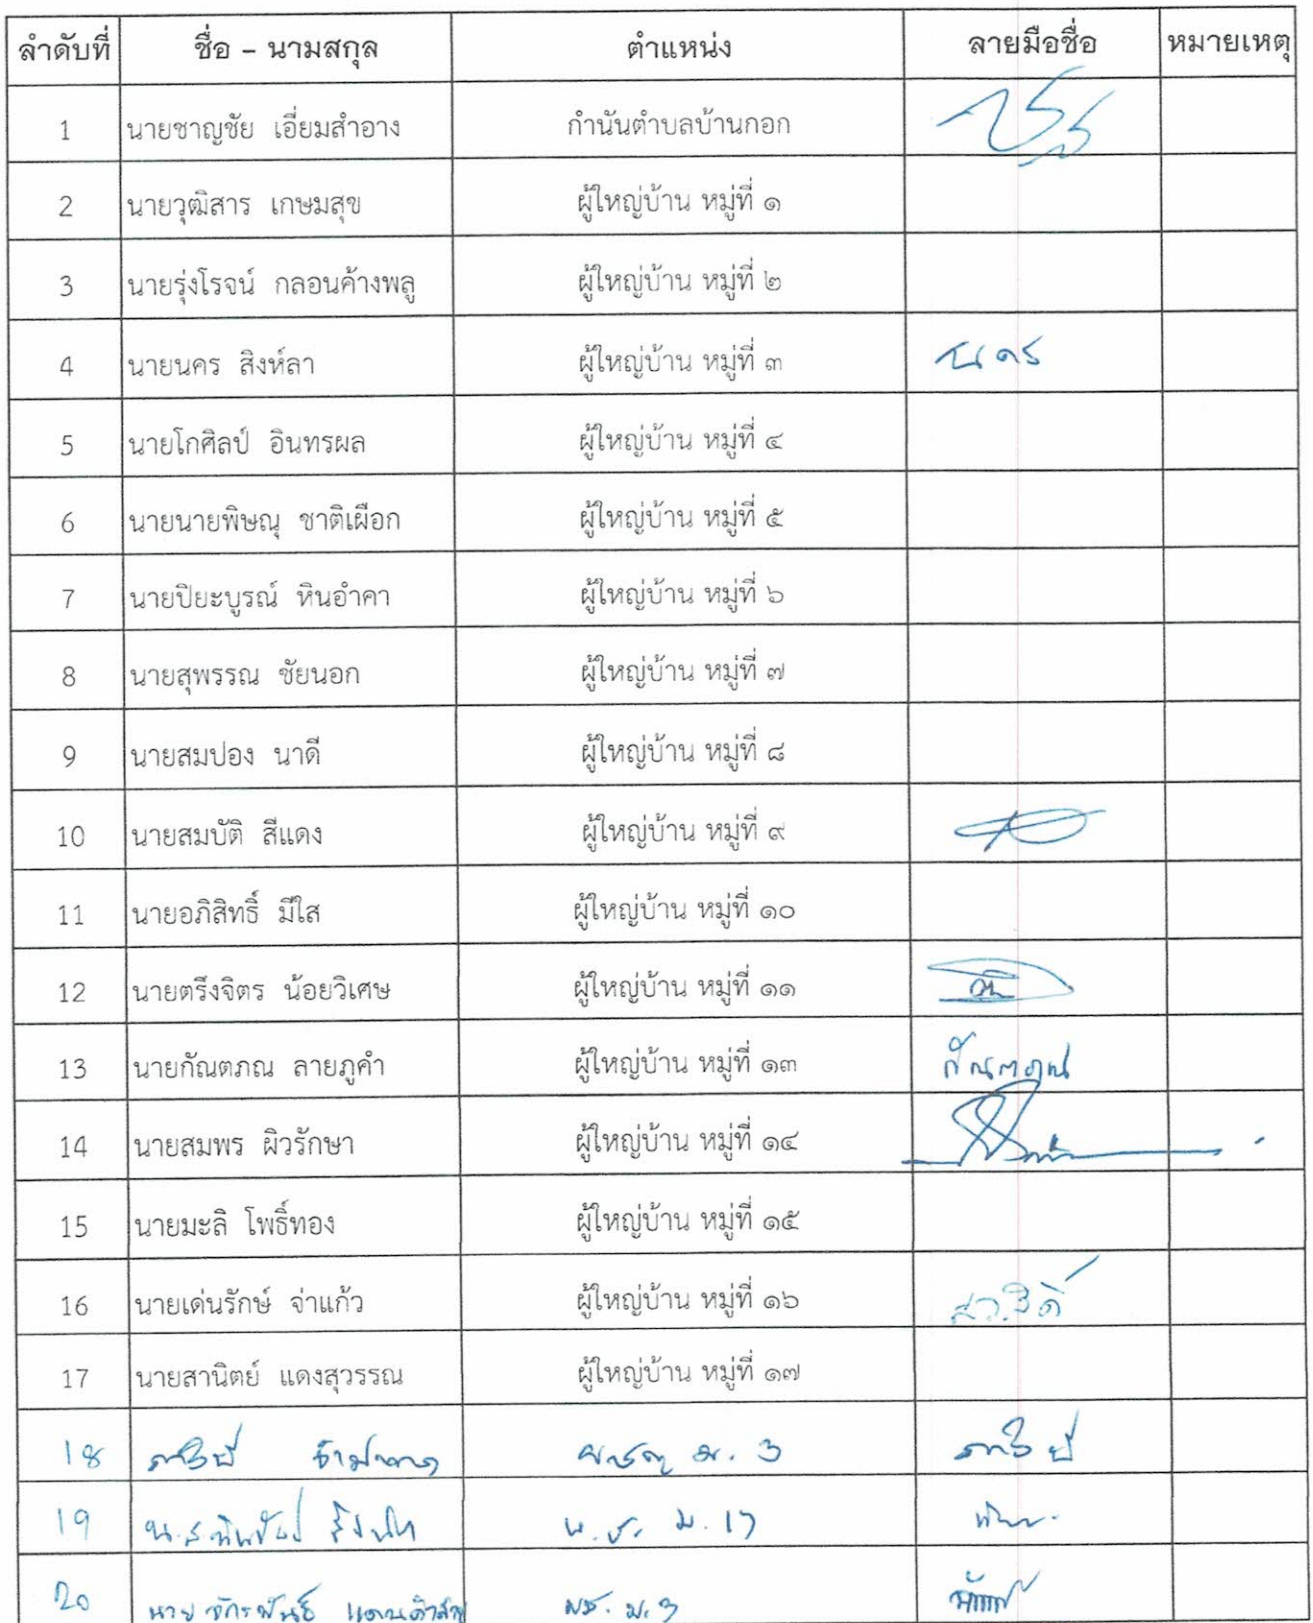 ลำดับที่ ชื่อ - นามสกุล ตำแหน่ง ลายมือชื่อ หมายเหตุ
1 นายชาญชัย เอี่ยมสำอาง กำนันตำบลบ้านกอก
2 นายวุฒิสาร เกษมสุข ผู้ใหญ่บ้าน หมู่ที่ ๑
3 นายรุ่งโรจน์ กลอนค้างพลู ผู้ใหญ่บ้าน หมู่ที่ ๒
4 นายนคร สิงห์ลา ผู้ใหญ่บ้าน หมู่ที่ ๓ นคร
5 นายโกศิลป์ อินทรผล ผู้ใหญ่บ้าน หมู่ที่ ๔
6 นายนายพิษณุ ชาติเผือก ผู้ใหญ่บ้าน หมู่ที่ ๕
7 นายปิยะบูรณ์ หินอำคา ผู้ใหญ่บ้าน หมู่ที่ ๖
8 นายสุพรรณ ชัยนอก ผู้ใหญ่บ้าน หมู่ที่ ๗
9 นายสมปอง นาดี ผู้ใหญ่บ้าน หมู่ที่ ๘
10 นายสมบัติ สีแดง ผู้ใหญ่บ้าน หมู่ที่ ๙
11 นายอภิสิทธิ์ มีใส ผู้ใหญ่บ้าน หมู่ที่ ๑๐
12 นายตรึงจิตร น้อยวิเศษ ผู้ใหญ่บ้าน หมู่ที่ ๑๑
13 นายกัณตภณ ลายภูคำ ผู้ใหญ่บ้าน หมู่ที่ ๑๓ กัณตภณ
14 นายสมพร ผิวรักษา ผู้ใหญ่บ้าน หมู่ที่ ๑๔
15 นายมะลิ โพธิ์ทอง ผู้ใหญ่บ้าน หมู่ที่ ๑๕
16 นายเด่นรักษ์ จ่าแก้ว ผู้ใหญ่บ้าน หมู่ที่ ๑๖
17 นายสานิตย์ แดงสุวรรณ ผู้ใหญ่บ้าน หมู่ที่ ๑๗
18 ม. 3
19 น.ส. ม. 17
20 นาย จักรพันธ์ ผช. ม. 3